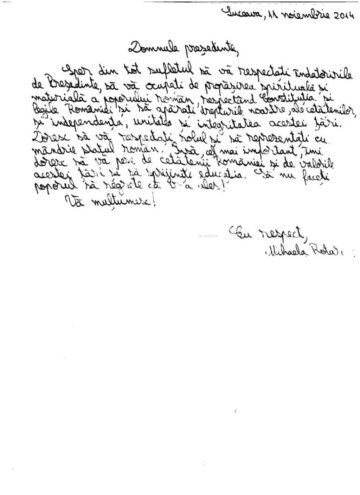 Suceava, 11 noiembrie 2014
Domnule președinte,
Sper din tot sufletul să vă respectați îndatoririle
de Președinte, să vă ocupați de propășirea spirituală și
materială a poporului român, respectând Constituția și
legile României și să apărați drepturile noastre, ale cetățenilor,
și independența, unitatea și integritatea acestei țări.
Doresc să vă respectați rolul și să reprezentați cu
mândrie statul român. Însă, cel mai important, îmi
doresc să vă pese de cetățenii României și de valorile
acestei țări și să sprijiniți educația. Să nu faceți
poporul să regrete că v-a ales!
Vă mulțumesc!
Cu respect,
Mihaela Rotar